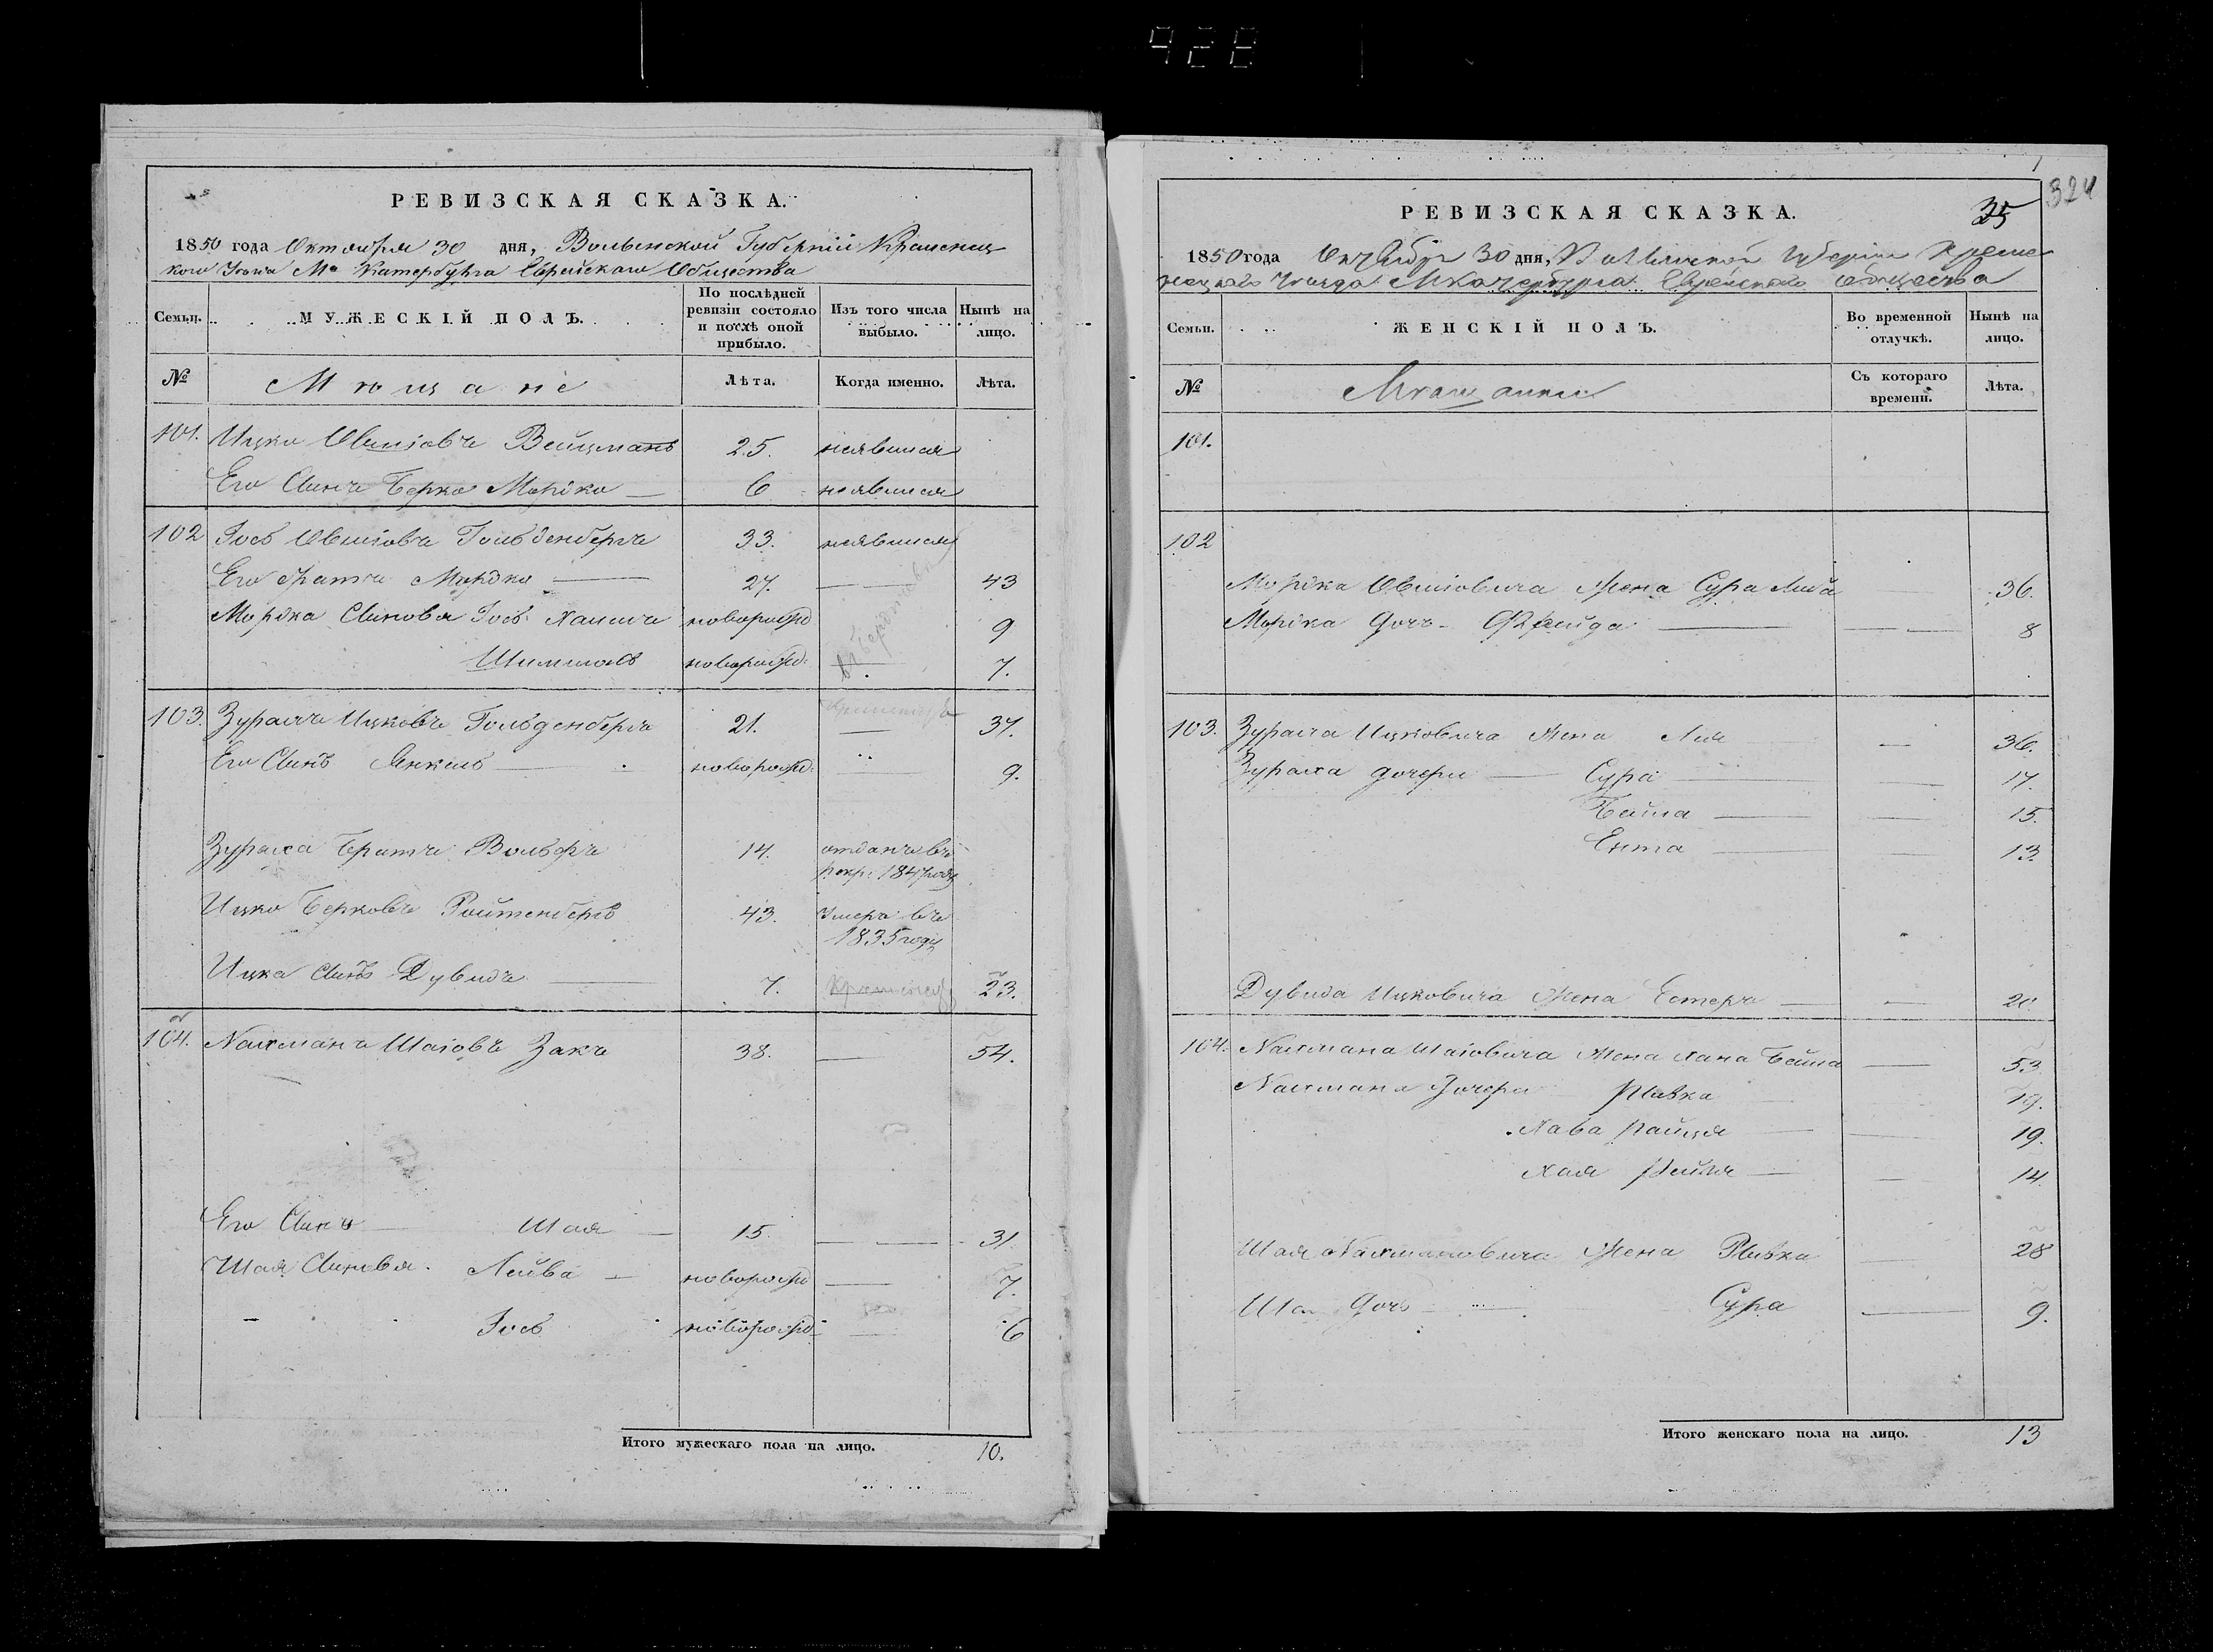 428
РЕВИЗСКАЯ СКАЗКА.
1850 года Октября 30 дня, Волынской Губерніи Кременец
кого Уезда Мка Катербурга Еврейскаго Общества
Семьи.
МУЖЕСКІЙ ПОЛЪ.
По послѣдней ревизіи состояло и послѣ оной прибыло.
Изъ того числа выбыло.
Нынѣ на лицо.
№
Мѣщане
Лѣта.
Когда именно.
Лѣта.
101. Ицко Овшіовъ Вейцманъ 25. неявился
Его Сынъ Берко Мордко — 6 неявился
102 Іось Овшіовъ Гольденбергъ 33. неявился
Его братъ Мордко — 27. — 43
Мордка Сыновья Іось Хаимъ новорожд 9
Шимшонъ новорожд: — 7.
103. Зурахъ Ицковъ Гольденбергъ 21. — 37.
Его Сынъ Янкель — новорожд: — 9.
Зураха Братъ Вольфъ 14. отданъ въ
рекр: 1847 году
Ицко Берковъ Ройтенбергъ 43. Умеръ въ
1835 году
Ицка Сынъ Дувидъ — 7. 23.
104. Нахманъ Шаіовъ Закъ 38. — 54.
Его Сынъ — Шая — 15. — 31.
Шая Сыновья. Лейба — новорожд — 7.
Іось новорожд — 6
Итого мужескаго пола на лицо. 10.
324
35
РЕВИЗСКАЯ СКАЗКА.
1850 года Октября 30 дня, Волынской Губерніи Креме
нецкаго Уезда Мка Катербурга Еврейскаго Общества
Семьи.
ЖЕНСКІЙ ПОЛЪ.
Во временной отлучкѣ.
Нынѣ на лицо.
№
Мѣщанки
Съ котораго времени.
Лѣта.
101.
102
Мордка Овшіовича Жена Сура 36.
Мордка Дочь — Фрейда — 8
103. Зураха Ицковича Жена Лея — 36.
Зураха дочери — Сура — 17.
Бейла — 15.
Ента — 13.
Дувида Ицковича Жена Естеръ — 20.
104. Нахмана Шаіовича Жена Хана Бейла — 53
Нахмана Дочери Ривка 19.
Хава Райця — 19.
Хая Рейзя — 14.
Шая Нахмановича Жена Ривка 28
Шая Дочь — Сура — 9.
Итого женскаго пола на лицо. 13